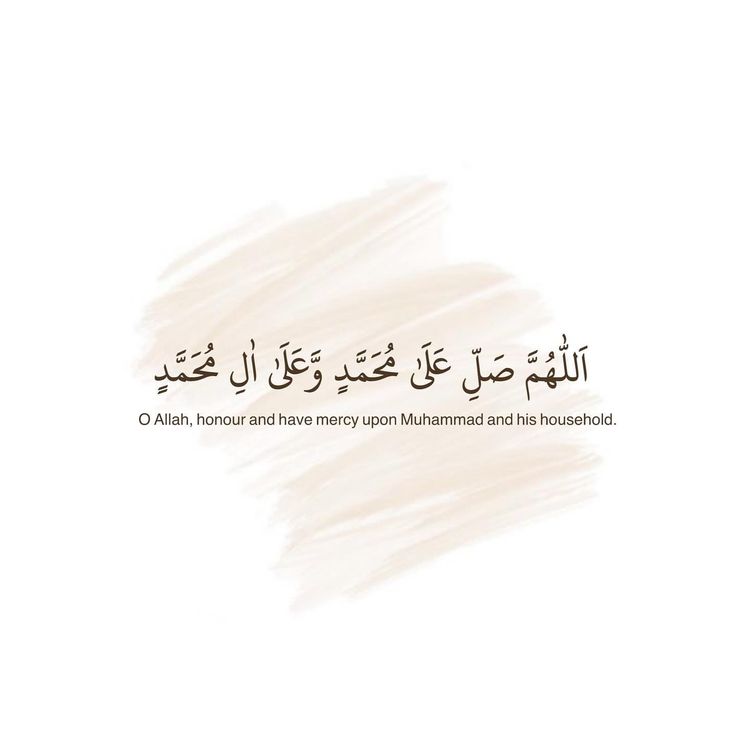 اَللّٰهُمَّ صَلِّ عَلَىٰ مُحَمَّدٍ وَّعَلَىٰ اٰلِ مُحَمَّدٍ
O Allah, honour and have mercy upon Muhammad and his household.